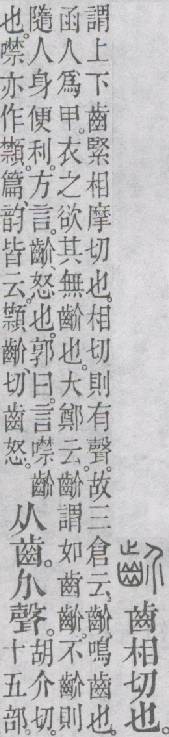 齘 齒相切也。
謂上下齒緊相摩切也。相切則有聲。故三倉云。齘、鳴齒也。
函人爲甲。衣之欲其無齘也。大鄭云。齘謂如齒齘。不齘則
隨人身便利。方言。齘、怒也。郭曰。言噤齘
也。噤亦作䫴。篇、韵皆云䫴齘、切齒怒。
从齒。介聲。
胡介切。
十五部。